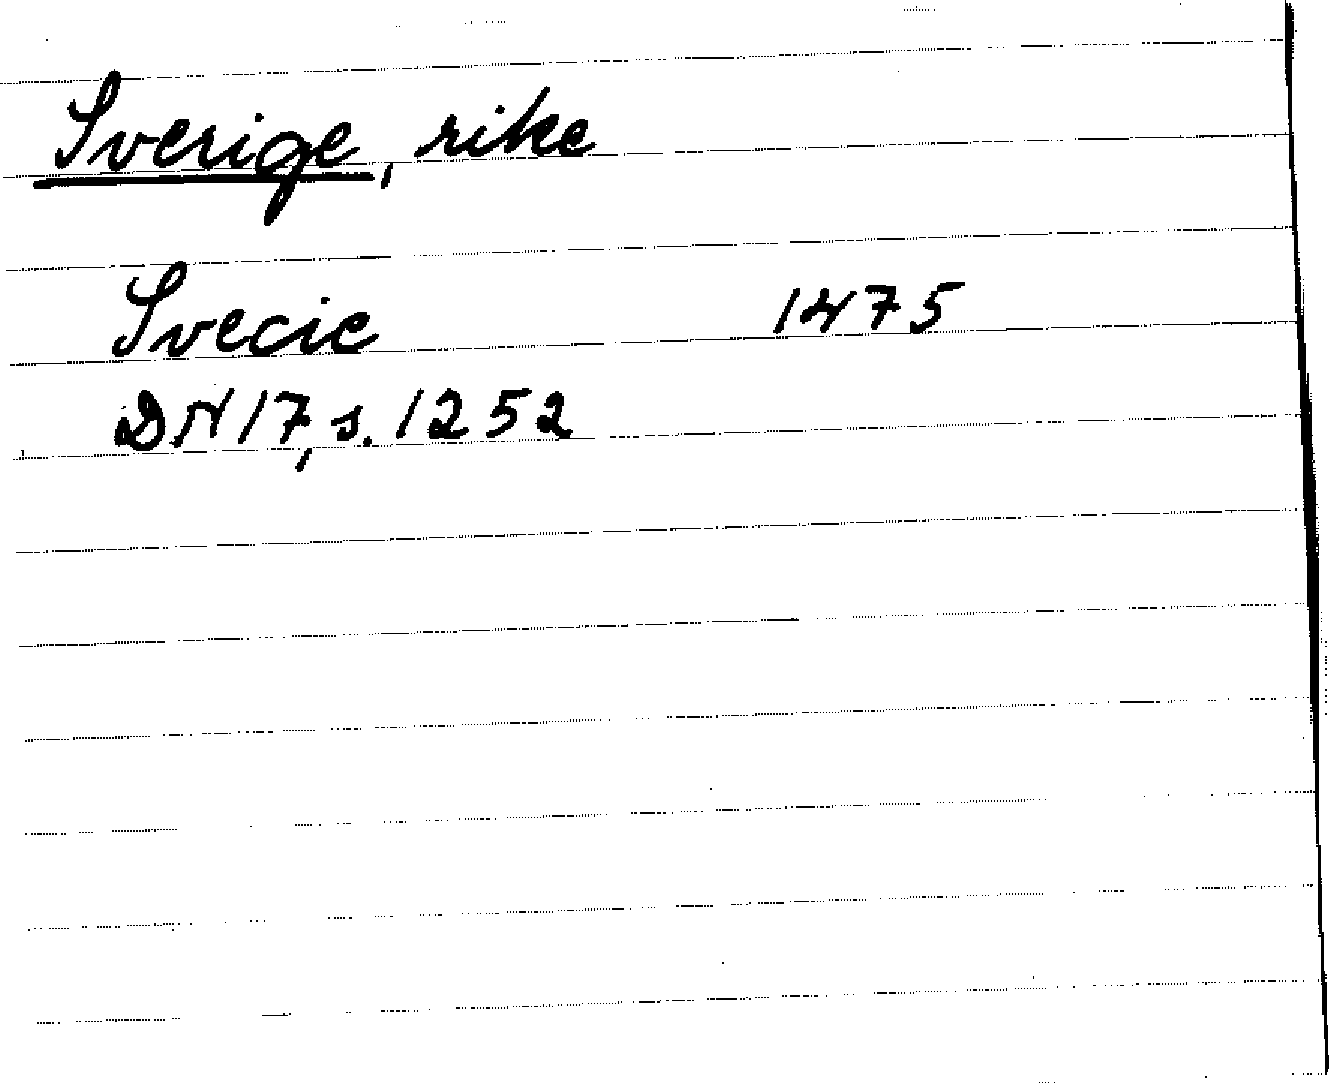 Sverige, rike
Svecie 1475
DN 17, s. 1252